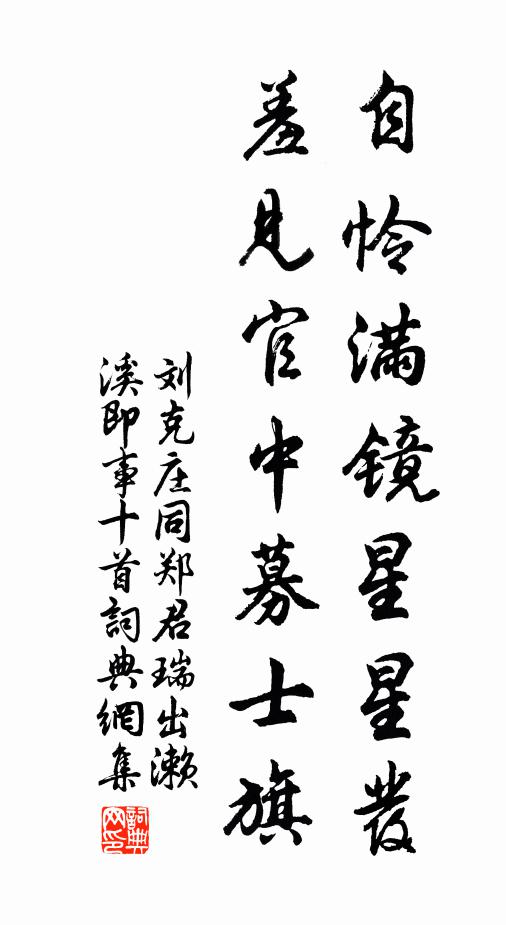 自怜满镜星星发
羞见官中募士旗
刘克庄同郑君瑞出濑
溪即事十首詞典網集
詞典
网印